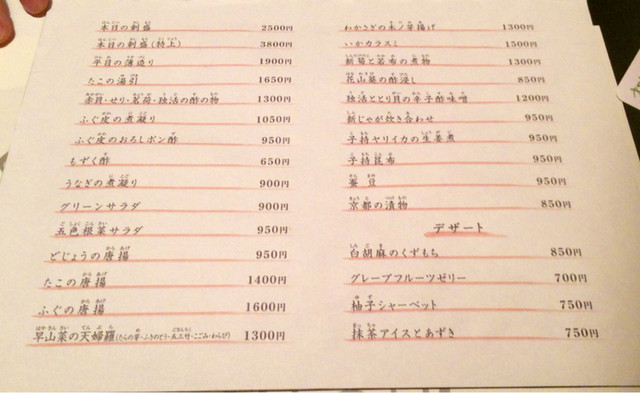 本日の刺盛 2500円
本日の刺盛(特上) 3800円
平目の薄造り 1900円
たこの湯引 1650円
赤貝・せり・茗荷・独活の酢の物 1300円
ふぐ皮の煮凝り 1050円
ふぐ皮のおろしポン酢 950円
もずく酢 650円
うなぎの煮凝り 900円
グリーンサラダ 900円
五色根菜サラダ 950円
どじょうの唐揚 950円
たこの唐揚 1400円
ふぐの唐揚 1600円
早山菜の天婦羅(たらの芽・ふきのとう・五三竹・こごみ・わらび) 1300円
わかさぎの木ノ芽揚げ 1300円
いかカラスミ 1500円
新筍と若布の煮物 1300円
花山葵の酢浸し 850円
独活ととり貝の辛子酢味噌 1200円
新じゃが炊き合わせ 950円
子持ヤリイカの生姜煮 950円
子持昆布 950円
蚕豆 950円
京都の漬物 850円
デザート
白胡麻のくずもち 850円
グレープフルーツゼリー 700円
柚子シャーベット 750円
抹茶アイスとあずき 750円